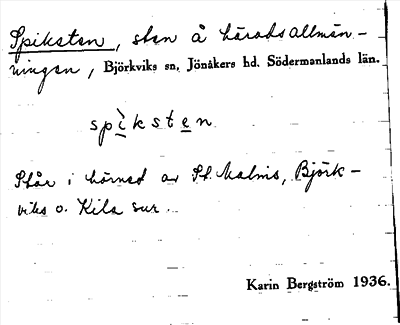 Spiksten, sten å häradsallmän-
ningen, Björkviks sn, Jönåkers hd. Södermanlands län.
spìksten
Står i hörnet av St. Malms, Björk-
viks o. Kila snr.
Karin Bergström 1936.